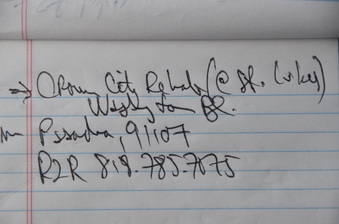 → Crown City Rehab (@ St. Lukes)
Washington Bl.
Pasadena, 91107
R2R 818.785.7075